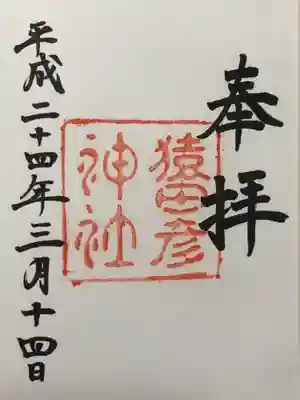 奉拝
猿田彦
神社
平成二十四年三月十四日